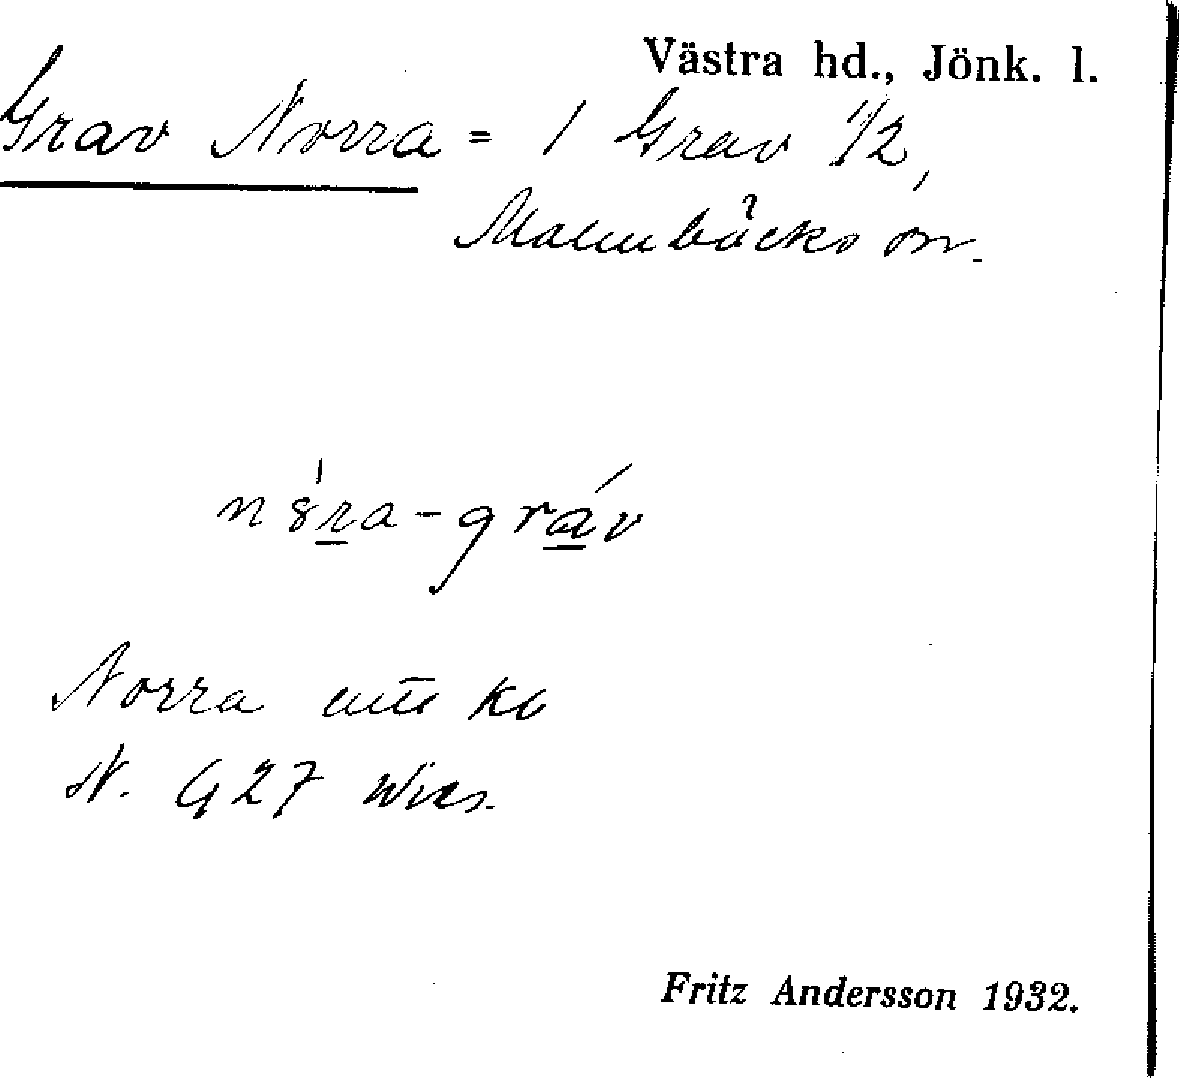 Västra hd., Jönk. l.
Grav Norra = 1 Grav 1/2,
Malmbäcks sn.
n8ra-gráv
Norra
N. G 27
Fritz Andersson 1932.